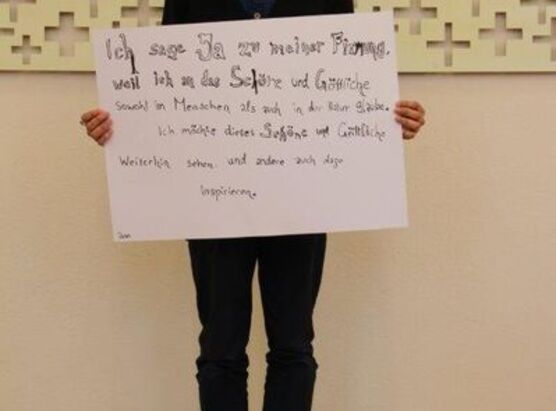 Ich sage Ja zu meiner Firmung,
weil ich an das Schöne und Göttliche
sowohl im Menschen als auch in der Natur glaube.
Ich möchte dieses Schöne und Göttliche
Weiterhin sehen und andere auch dazu
inspirieren.